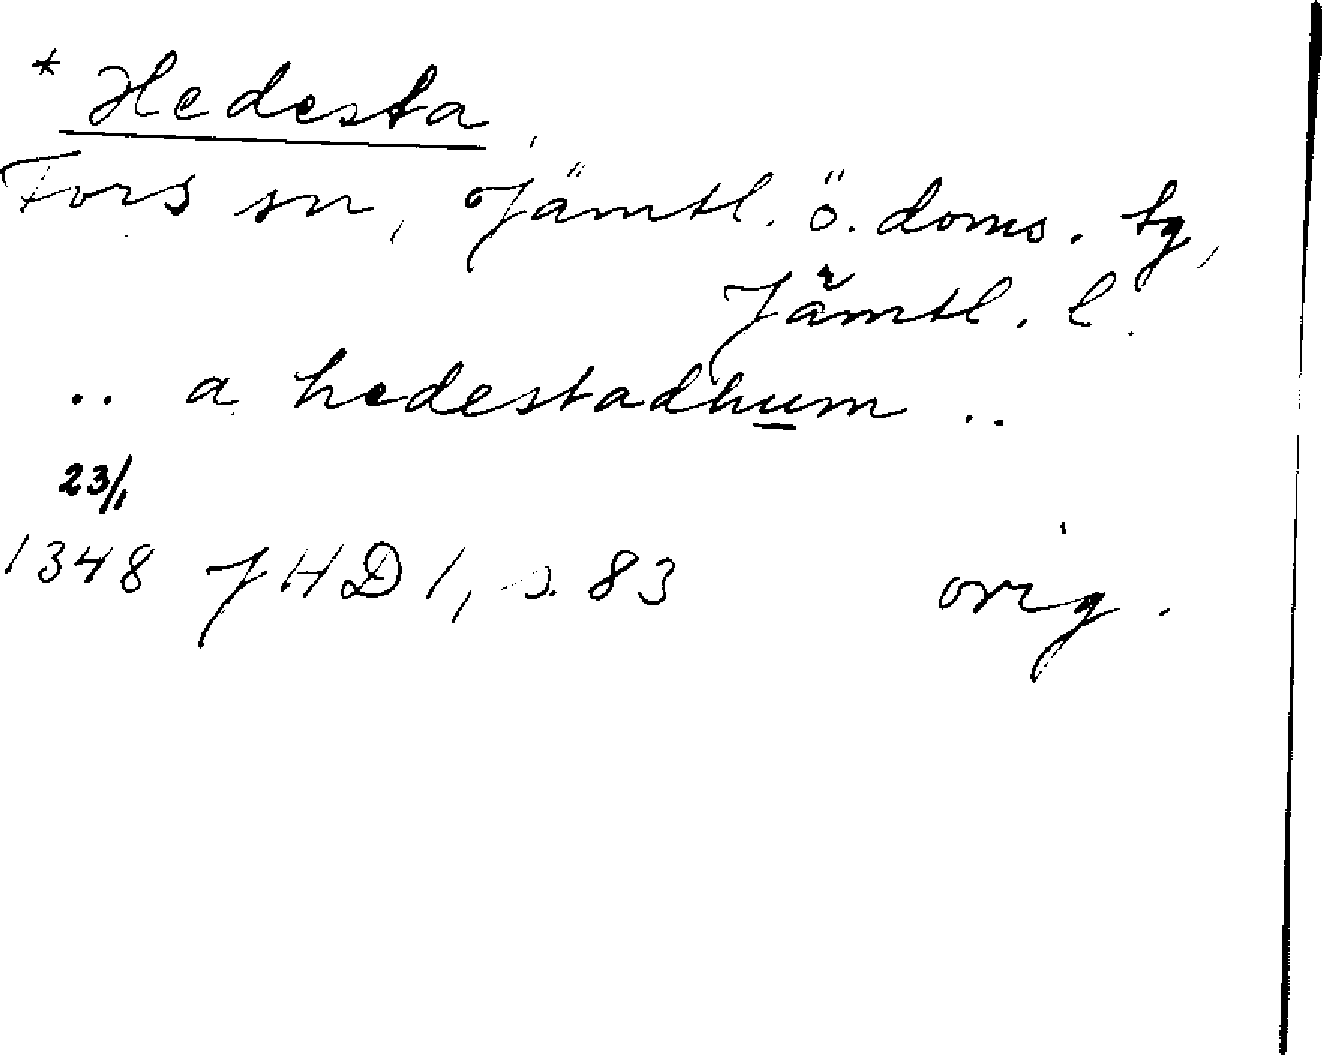 * Hedesta
Fors sn, Jämtl. ö. doms. tg,
Jämtl. l.
.. a hedestadhum ..
23/1
1348 JHD 1, s. 83 orig.